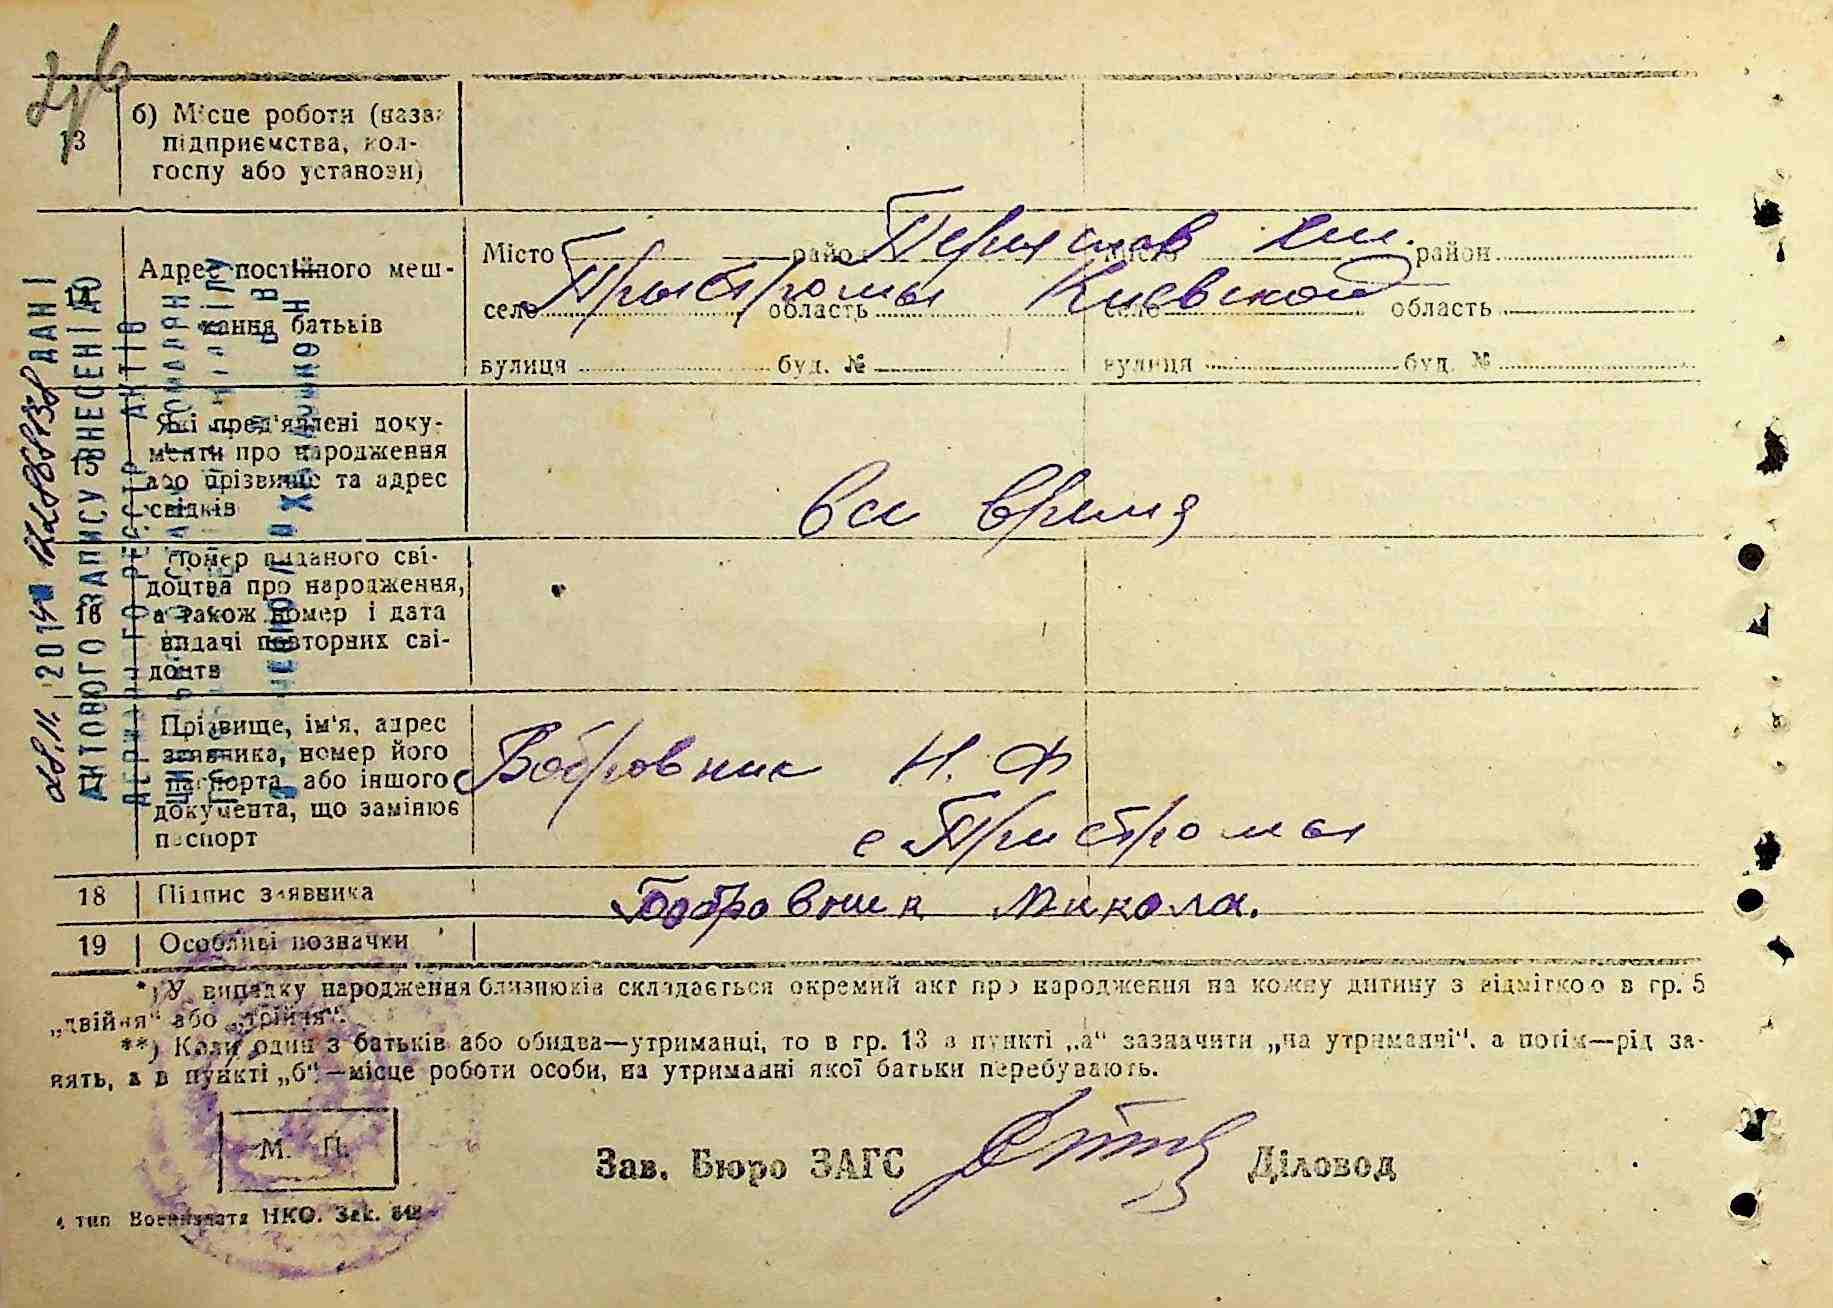 13
б) Місце роботи (назва
підприємства, кол-
госпу або установи)
14
Адрес постійного меш-
кання батьків
Місто район Переяслав Місто район
село Пристромы область Киевской село область
вулиця буд. № вулиця буд. №
15
Які пред'явлені доку-
менти про народження
або прізвище та адрес
свідків
16
Номер виданого сві-
доцтва про народження,
а також номер і дата
видачі повторних сві-
доцтв
17
Прізвище, ім'я, адрес
заявника, номер його
паспорта або іншого
документа, що замінює
паспорт
Бобровник Н. Ф
с Пристромы
18 Підпис заявника Бобровник Микола.
19 Особливі позначки
*) У випадку народження близнюків складається окремий акт про народження на кожну дитину з відміткою в гр. 5
„двійня“ або „трійня“.
**) Коли один з батьків або обидва—утриманці, то в гр. 13 в пункті „а“ зазначити „на утриманні“, а потім—рід за-
нять, а в пункті „б“—місце роботи особи, на утриманні якої батьки перебувають.
М. П.
Зав. Бюро ЗАГС Діловод
тип Воениздата НКО. Зак.
28.11.2014 ДАНІ
АКТОВОГО ЗАПИСУ ВНЕСЕНІ ДО
РЕЄСТР АКТІВ